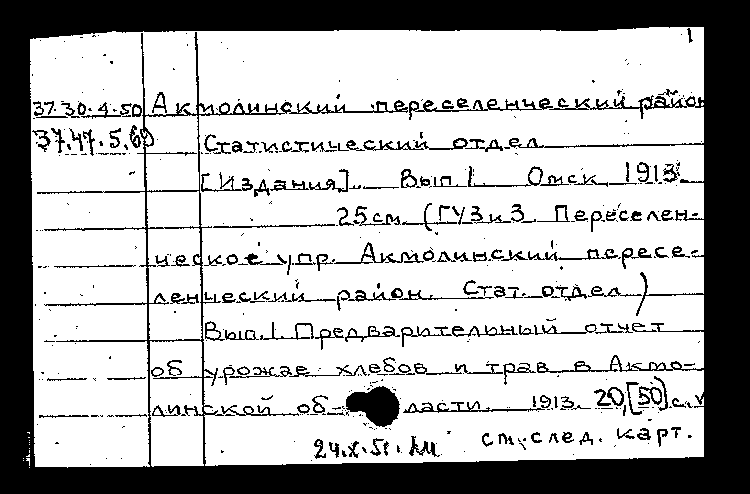 1
37.30.4.50 Акмолинский переселенческий район
37.47.5.69 Статистический отдел
[Издания]. Вып. 1. Омск, 1913.
25 см. (ГУЗиЗ. Переселен-
ческое упр. Акмолинский пересе-
ленческий район. Стат. отдел)
Вып. 1. Предварительный отчет
об урожае хлебов и трав в Акмо-
линской об- ласти. 1913. 20,[50] с.
24.X.51. см. след. карт.